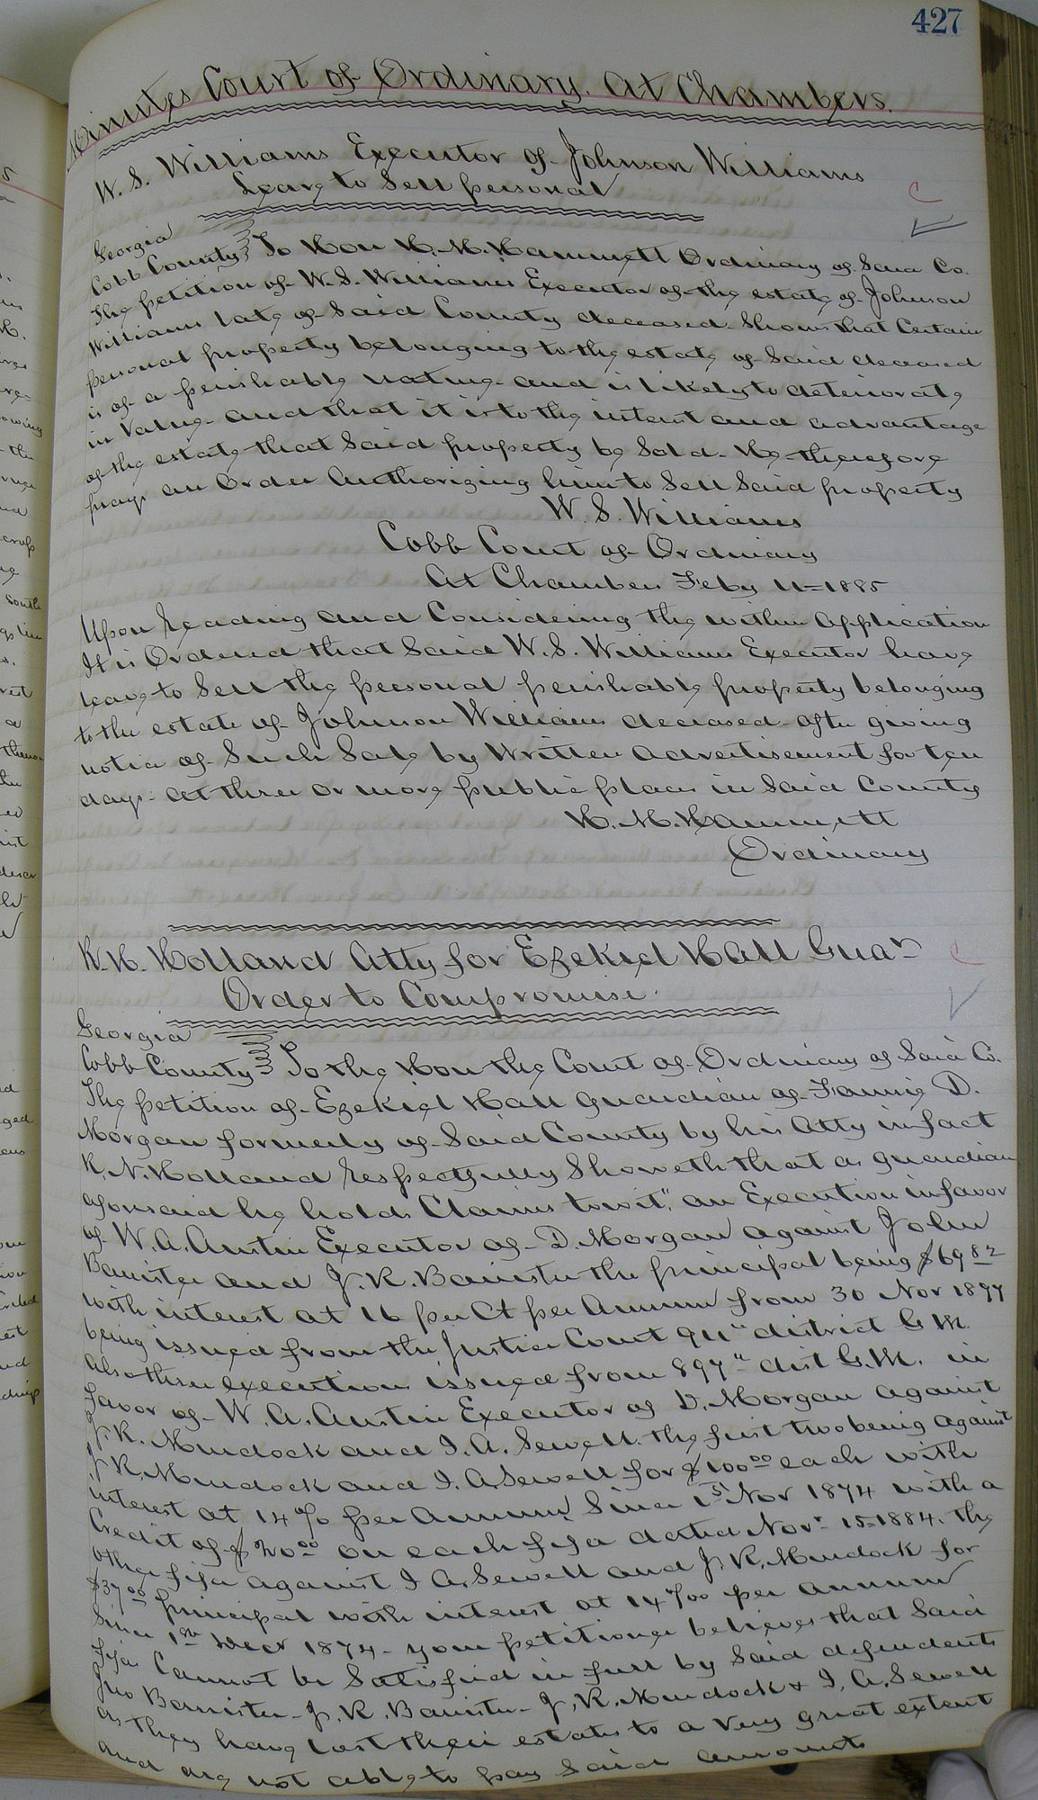 427
Minutes Court of Ordinary. At Chambers.
W. S. Williams Executor of Johnson Williams
Leave to Sell personal
Georgia
Cobb County To Hon H. M. Hammett Ordinary of Said Co.
The petition of W. S. Williams Executor of the estate of Johnson
Williams late of Said County deceased Shows that Certain
personal property belonging to the estate of Said deceased
is of a perishable nature and is likely to deteriorate
in Value and that it is to the interest and advantage
of the estate that Said property be Sold. He therefore
prays an Order Authorizing him to Sell Said property
W. S. Williams
Cobb Court of Ordinary
At Chambers Feby 11=1885
Upon reading and Considering the within application
It is Ordered that Said W. S. Williams Executor have
leave to Sell the personal perishable property belonging
to the estate of Johnson Williams deceased after giving
notice of Such Sale by Written advertisement for ten
days at three or more public places in Said County
H. M. Hammett
Ordinary
R. N. Holland Atty for Ezekiel Hall Guar
Order to Compromise
Georgia
Cobb County To the Hon the Court of Ordinary of Said Co.
The petition of Ezekiel Hall guardian of Fannie D.
Morgan formerly of Said County by his Atty in fact
R. N. Holland respectfully Showeth that as guardian
aforesaid he holds Claims towit, an Execution in favor
of W. A. Austin Executor of D. Morgan against John
Banister and J. R. Banister the principal being $69 82
with interest at 16 per Ct per Annum from 30 Nov 1877
being issued from the Justice Court 911" district G M.
Also three execution issued from 897" dist G. M. in
favor of W. A. Austin Executor of D. Morgan against
J. R. Murdock and I. A. Sewell. the first two being against
J R. Murdock and I. A Sewell for $100 00 each with
interest at 14 % per Annum Since 1st Nov 1874 with a
Credit of $20 00 on each fifa dated Novr 15=1884. the
other fifa against I A. Sewell and J. R. Murdock for
$37 00 principal with interest at 14 % per annum
Since 1st Decr 1874 - your petitioner believes that Said
fifas Cannot be Satisfied in full by Said defendents
Jno Banister - J. R. Banister - J. R. Murdock & I. A. Sewell
as they have lost their estates to a very great extent
and are not able to pay Said amounts